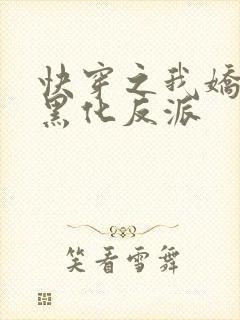 快穿之我娇
黑化反派
笑看雪舞